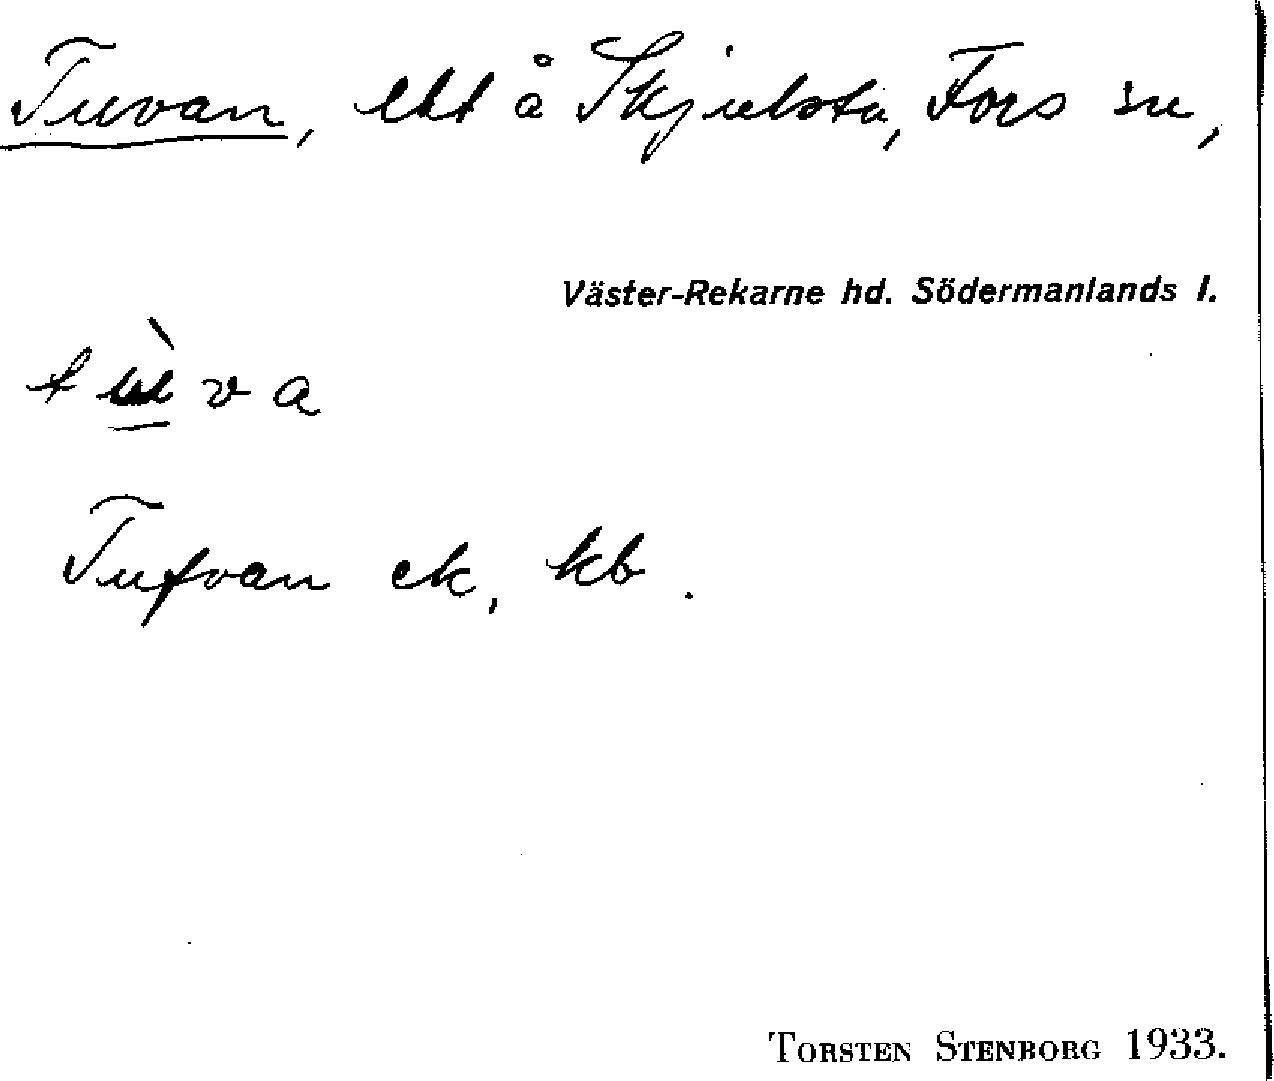 Tuvan, elt å Skjulsta, Fors sn,
Väster-Rekarne hd. Södermanlands l.
tùva
Tufvan ek, kb.
TORSTEN STENBORG 1933.